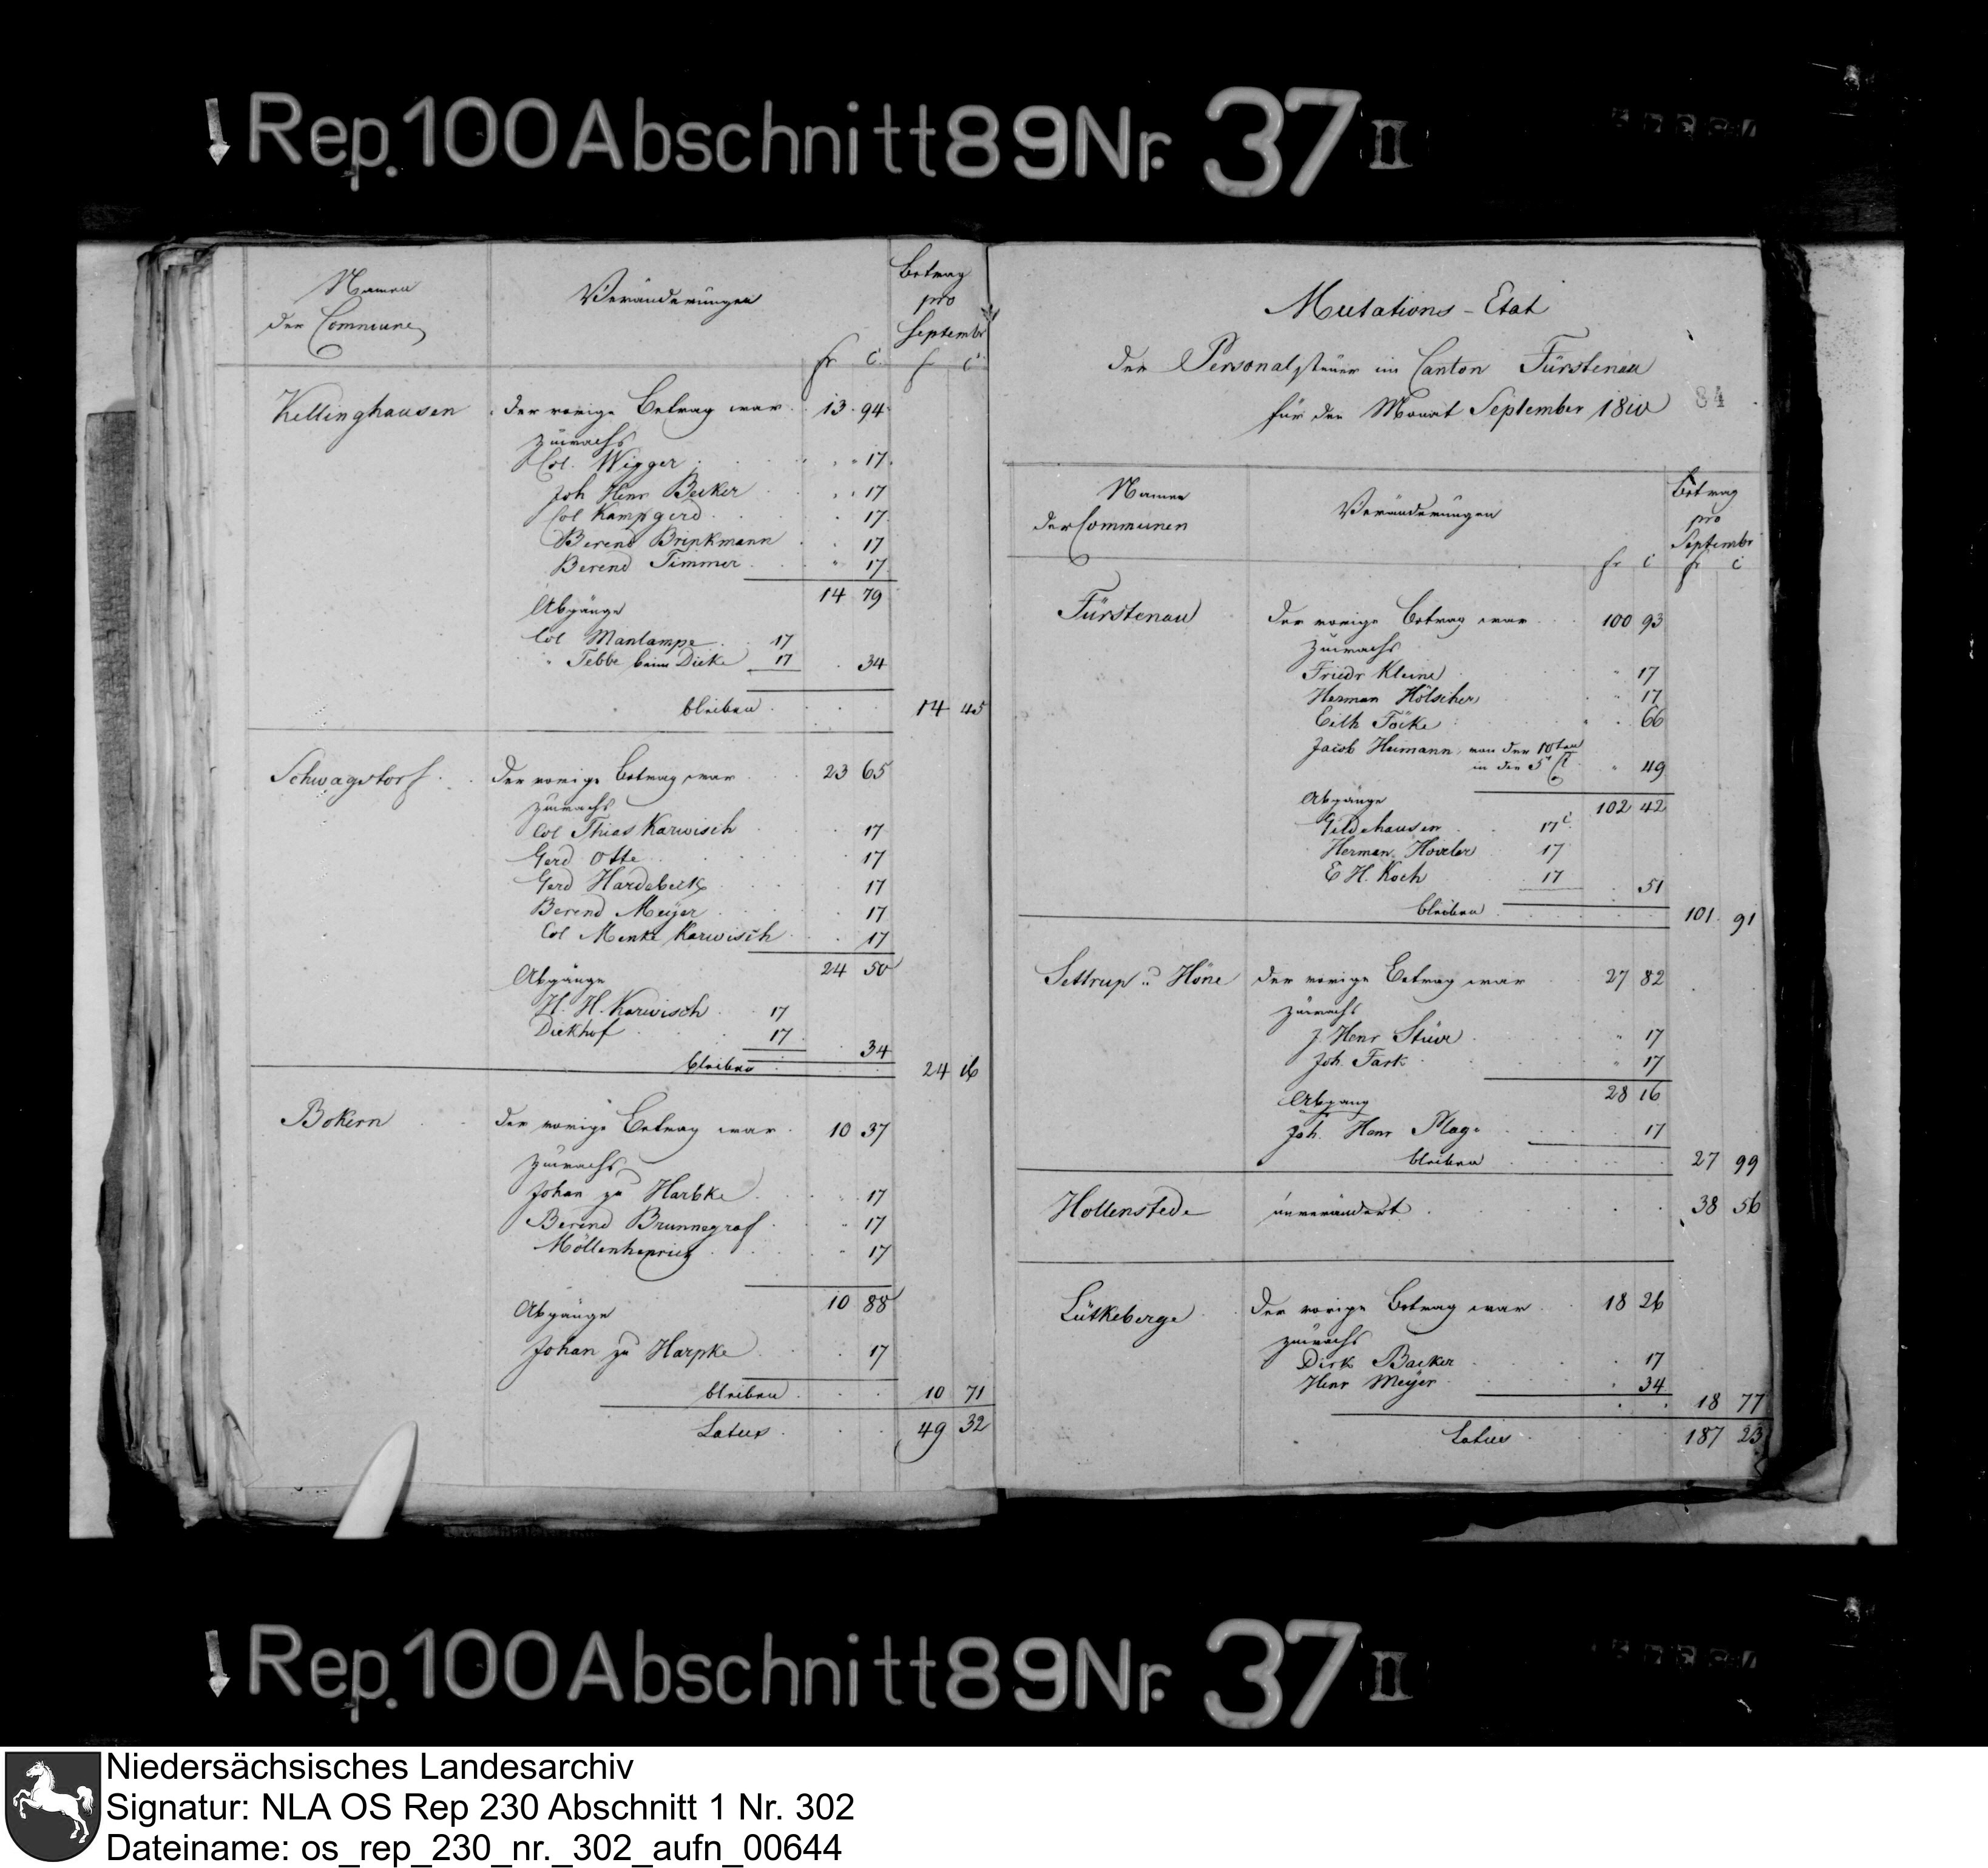 Rep. 100 Abschnitt 89 Nr. 37 II
Namen
der Commune
Veränderungen
Betrag
pro
Septembr
fr c
fr c
Kettinghausen der vorige Betrag war 13 94
Zuwachs
Col. Wigger 17
Joh Henr Becker 17
Col Kampgerd 17
Berend Brinkmann 17
Berend Timmer 17
14 79
Abgänge
Col Manlampe 17
" Tebbe beim Dieke 17 34
bleiben 14 45
Schwagstorf der vorige Betrag war 23 65
Zuwachs
Col Thias Karwisch 17
Gerd Otte 17
Gerd Hardebeck 17
Berend Meÿer 17
Col Menke Karwisch 17
24 50
Abgänge
H. H. Karwisch 17
Diekhof 17 34
bleiben 24 16
Bokern der vorige Betrag war 10 37
Zuwachs
Johan zu Harbke 17
Berend Brunnegraf 17
Möllenheprich 17
10 88
Abgänge
Johan zu Harpke 17
bleiben 10 71
Latus 49 32
Mutations-Etat
der Personalsteuer im Canton Fürstenau
für den Monat September 1810
84
Namen
der Communen
Veränderungen
Betrag
pro
Septembr
fr c
fr c
Fürstenau der vorige Betrag war 100 93
Zuwachs
Friedr Kleine 17
Herman Hölscher 17
Eilh Föcke 66
Jacob Heimann von der 10ten
in die 5t Cl 49
102 42
Abgänge
Gildehausen 17 c
Herman Hoveler 17
E H. Koch 17 51
bleiben 101 91
Settrup u Höne der vorige Betrag war 27 82
Zuwachs
J. Henr Stüve 17
Joh. Fark 17
28 16
Abgang
Joh. Henr Plage 17
bleiben 27 99
Hollenstede unverändert 38 56
Lütkeberge der vorige Betrag war 18 26
Zuwachs
Dirk Backer 17
Henr Meÿer 34
18 77
Latus 187 23
Rep. 100 Abschnitt 89 Nr. 37 II
Niedersächsisches Landesarchiv
Signatur: NLA OS Rep 230 Abschnitt 1 Nr. 302
Dateiname: os_rep_230_nr._302_aufn_00644